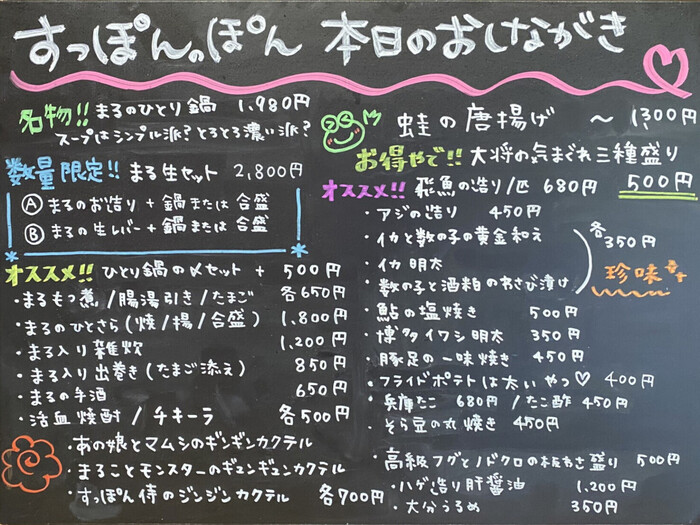 すっぽんのぽん 本日のおしながき
名物!! まるのひとり鍋 1,980円
スープはシンプル派?とろとろ濃い派?
数量限定!! まる生セット 2,800円
Ⓐ まるのお造り + 鍋または 合盛
Ⓑ まるの生レバー + 鍋または 合盛
オススメ!! ひとり鍋の〆セット + 500円
・まるもつ煮/腸湯引き/たまご 各650円
・まるのひとさら(焼/揚/合盛) 1,800円
・まる入り雑炊 1,200円
・まる入り出巻き(たまご添え) 850円
・まるの手酒 650円
・活血焼酎 / チキーラ 各500円
・あの娘とマムシのギンギンカクテル
・まることモンスターのギュンギュンカクテル
・すっぽん侍のジンジンカクテル 各700円
蛙の唐揚げ 〜 1,300円
お得やで!! 大将の気まぐれ三種盛り
500円
オススメ!! 飛魚の造り/匹 680円
・アジの造り 450円
・イカと数の子の黄金和え
・イカ明太
・数の子と酒粕のわさび漬け
各350円
珍味
・鮎の塩焼き 500円
・博多イワシ明太 350円
・豚足の一味焼き 450円
・フライドポテトは太いやつ♡ 400円
・兵庫たこ 680円 /たこ酢 450円
・そら豆の丸焼き 450円
・高級フグとノドクロの板わさ盛り 500円
・ハゲ造り肝醤油 1,200円
・大分うるめ 350円